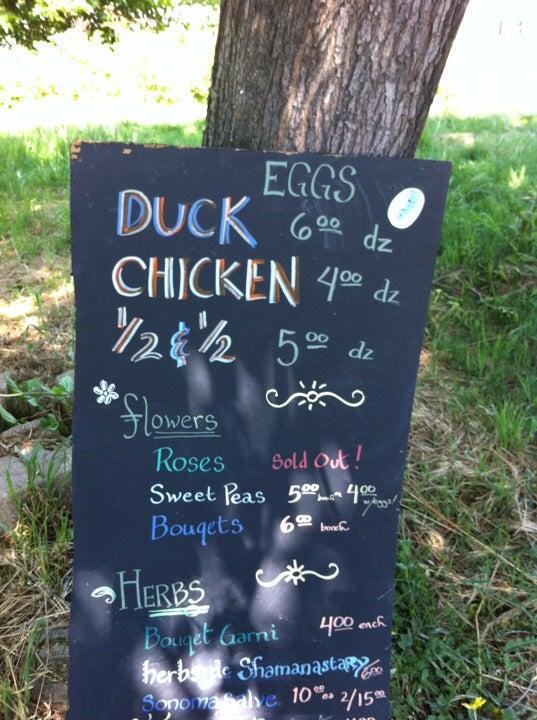 EGGS
DUCK 6⁰⁰ dz
CHICKEN 4⁰⁰ dz
1/2 & 1/2 5⁰⁰ dz
flowers
Roses Sold Out!
Sweet Peas 5⁰⁰ bunch 4⁰⁰ w/eggs!
Bouqets 6⁰⁰ bunch
HERBS
Bouqet Garni 4⁰⁰ each
herbs de Shamanastary
Sonoma Salve 10⁰⁰ ea 2/15⁰⁰